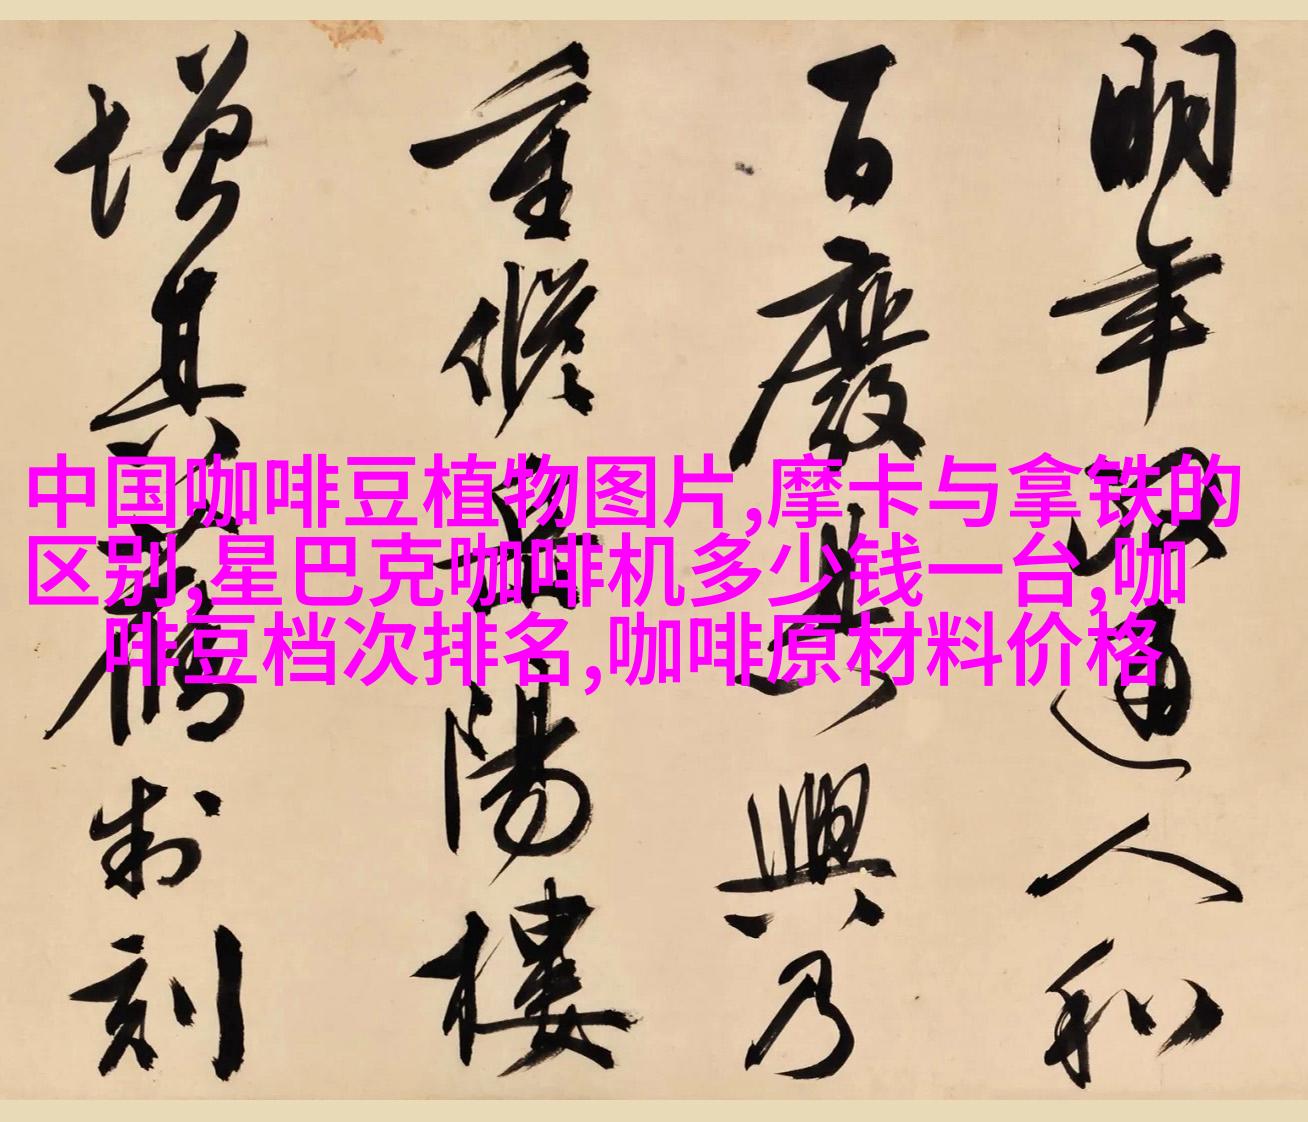 中国咖啡豆植物图片,摩卡与拿铁的
区别,星巴克咖啡机多少钱一台,咖
啡豆档次排名,咖啡原材料价格
明年政通人和
百廢具興乃
重修岳陽樓
增其舊制刻